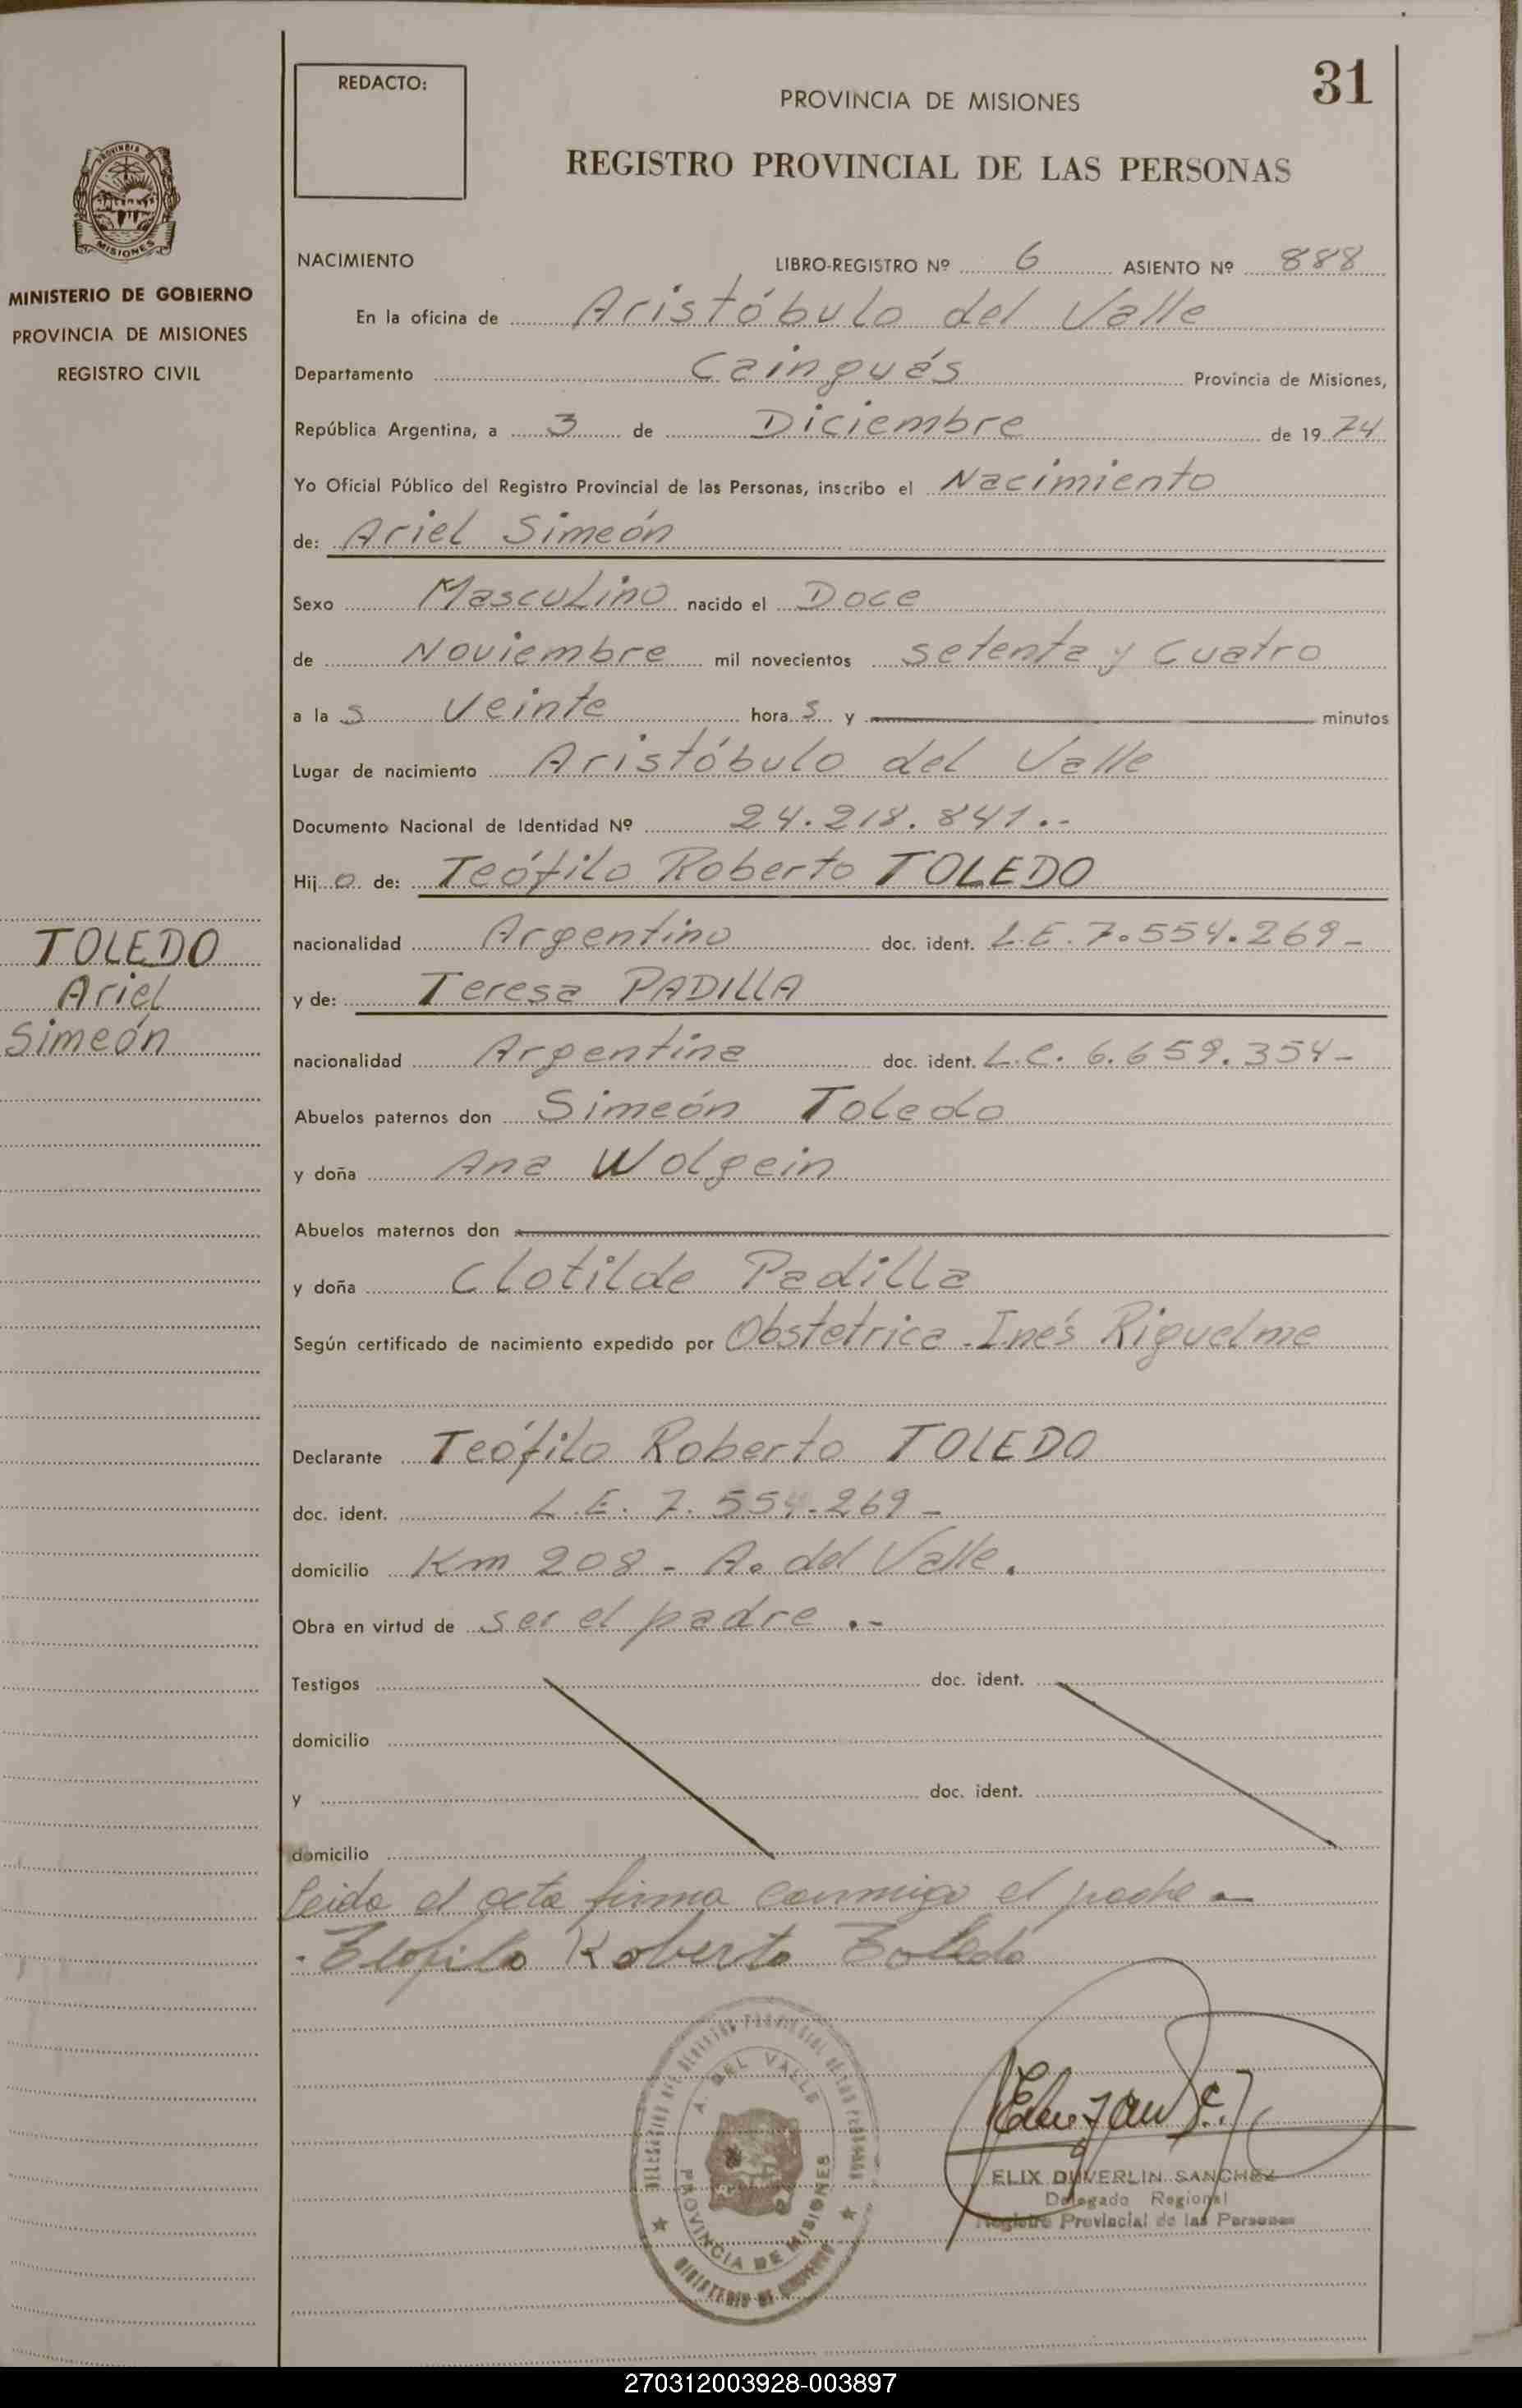 REDACTO:
31
PROVINCIA DE MISIONES
REGISTRO PROVINCIAL DE LAS PERSONAS
PROVINCIA DE
MISIONES
MINISTERIO DE GOBIERNO
PROVINCIA DE MISIONES
REGISTRO CIVIL
NACIMIENTO LIBRO-REGISTRO Nº 6 ASIENTO Nº 888
En la oficina de Aristóbulo del Valle
Departamento Cainguás Provincia de Misiones,
República Argentina, a 3 de Diciembre de 1974
Yo Oficial Público del Registro Provincial de las Personas, inscribo el Nacimiento
de: Ariel Simeón
Sexo Masculino nacido el Doce
de Noviembre mil novecientos setenta y Cuatro
a las veinte horas y minutos
Lugar de nacimiento Aristóbulo del Valle
Documento Nacional de Identidad Nº 24.218.841.-
Hijo de: Teófilo Roberto TOLEDO
nacionalidad Argentino doc. ident. L.E. 7.554.269-
y de: Teresa PADILLA
nacionalidad Argentina doc. ident. L.C. 6.659.354-
Abuelos paternos don Simeón Toledo
y doña Ana Wolgein
Abuelos maternos don
y doña Clotilde Padilla
Según certificado de nacimiento expedido por Obstetrica - Inés Riquelme
Declarante Teófilo Roberto TOLEDO
doc. ident. L.E. 7.554.269-
domicilio Km 208 - A. del Valle.
Obra en virtud de ser el padre.-
Testigos doc. ident.
domicilio
y doc. ident.
domicilio
TOLEDO
Ariel
Simeón
Leida el acta firma conmigo el padre -
Teofilo Roberto Toledo
DELEGACION DEL REGISTRO PROVINCIAL DE LAS PERSONAS
A. DEL VALLE
PROVINCIA DE MISIONES
MINISTERIO DE GOBIERNO
ELIX DUVERLIN SANCHEZ
Delegado Regional
Registro Provincial de las Personas
270312003928-003897